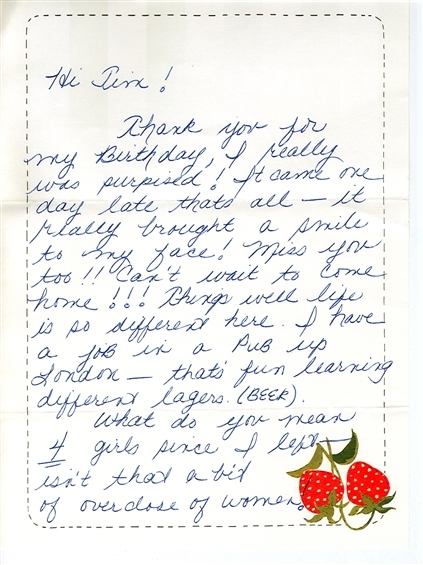 Hi Tim!
Thank you for
my Birthday, I really
was surpised! It came one
day late thats all – it
really brought a smile
to my face! Miss you
too!! Can't wait to come
home!!! Things well life
is so different here. I have
a job in a Pub up
London – that's fun learning
different lagers. (BEER).
What do you mean
4 girls since I left –
isn't that a bit
of overdose of women.